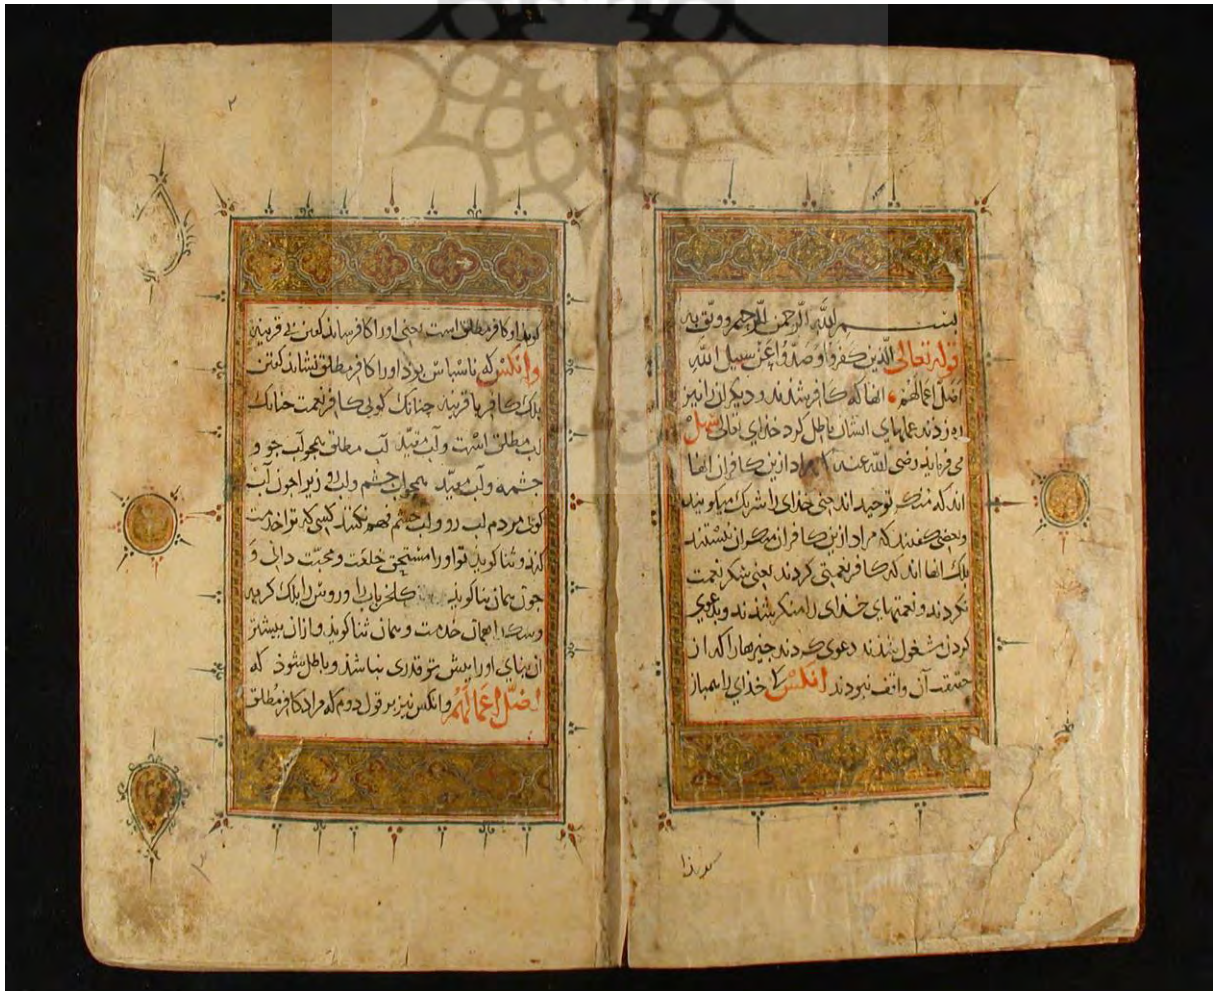 بسم الله الرحمن الرحيم و وثق به
قوله تعالی الذین کفروا و صدوا عن سبیل الله
اضل اعمالهم انها که کافر شدند و دیکران را نیز
ره زدند عملهای ایشان باطل کرد خدای تعالی سهل
می فرماید رضی الله عنه مراد ازین کافران انها
اند که منکر توحید اند یعنی خدای را شریک میکویند
و بعضی کفتند که مراد ازین کافران منکران نیستند
بلک انها اند که کافر نعمتی کردند یعنی شکر نعمت
نکردند و نعمتهای خدای را منکر شدند و بدعوی
کردن مشغول شدند دعوی کردند چیزهارا که از
حقیقت آن واقف نبودند انکس کا خدای را همباز
کوید او کافر مطلق است یعنی اورا کافر شاید کفتن بی قرینه
وانکس که ناسپاس بود اورا کافر مطلق نشاید کفتن
بلک کافر با قرینه چنانک کویی کافر نعمت چنانک
آب مطلق است و آب مقید آب مطلق همچو آب جو و
چشمه و آب مقید همچو آب چشم و آب روی زیرا چون آب
کویی مردم آب رو و آب چشم فهم نکنند کسی که ترا خدمت
کند و ثنا کوید تو اورا مستحق خلعت و محبت دانی و
چون همان ثنا کوید کلخن تاب را و روسبی را بلک کربه
و سک را همان خدمت و همان ثنا کوید و ازان بیشتر
آن ثنای اورا پیش تو قدری نباشد و باطل شود که
اضل اعمالهم وانکس نیز بر قول دوم که مراد کافر مطلق
۲